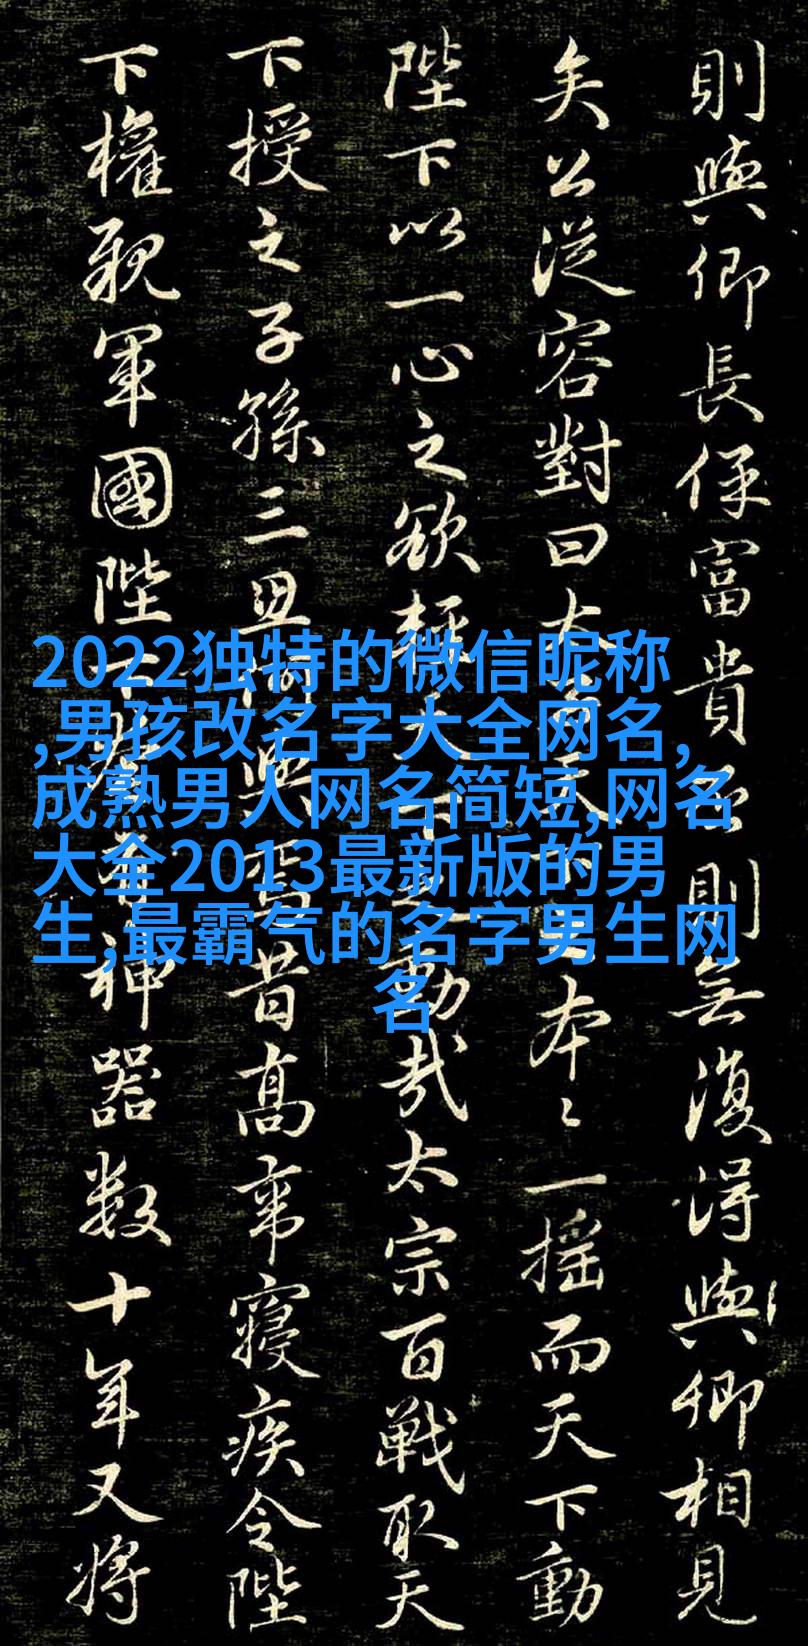 2022独特的微信昵称
,男孩改名字大全网名,
成熟男人网名简短,网名
大全2013最新版的男
生,最霸气的名字男生网
名
則與卿長保富貴則無復得與卿相見
矣公從容對曰本〻一搖而天下動
陛下以一心之欲輕動哉太宗百戰取天
下授之子孫三昔高帝寢疾令陛
下權親軍國陛神器数十年又將